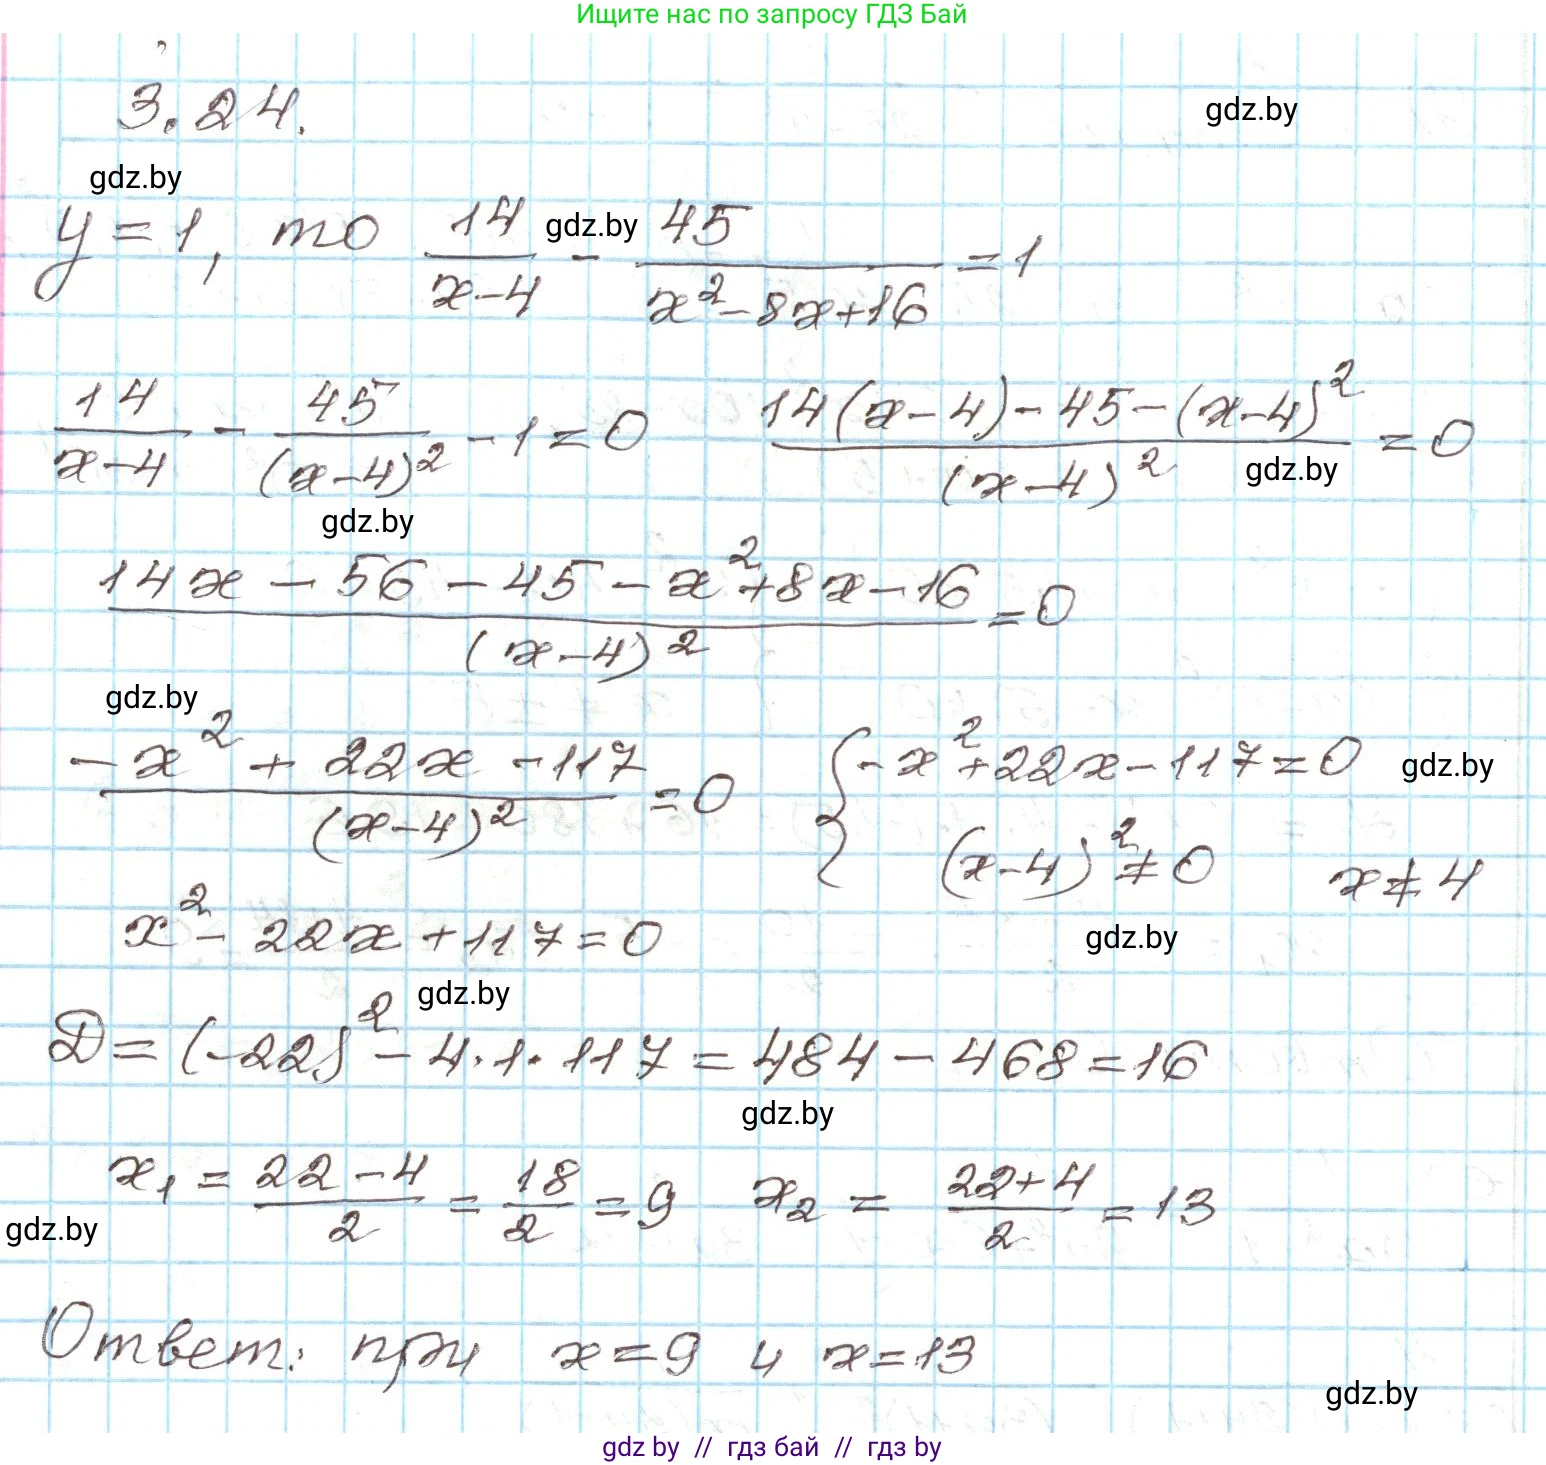 Ищите нас по запросу ГДЗ Бай
3.24.
gdz.by
gdz.by
y = 1, то 14/(x-4) - 45/(x²-8x+16) = 1
gdz.by
14/(x-4) - 45/(x-4)² - 1 = 0 (14(x-4) - 45 - (x-4)²)/(x-4)² = 0
gdz.by
gdz.by
(14x - 56 - 45 - x² + 8x - 16)/(x-4)² = 0
gdz.by
(-x² + 22x - 117)/(x-4)² = 0 { -x² + 22x - 117 = 0
gdz.by
(x-4)² ≠ 0 x ≠ 4
x² - 22x + 117 = 0
gdz.by
gdz.by
D = (-22)² - 4·1·117 = 484 - 468 = 16
gdz.by
x₁ = (22-4)/2 = 18/2 = 9 x₂ = (22+4)/2 = 13
gdz.by
Ответ: при x = 9 и x = 13
gdz.by
gdz by // гдз бай // gdz by